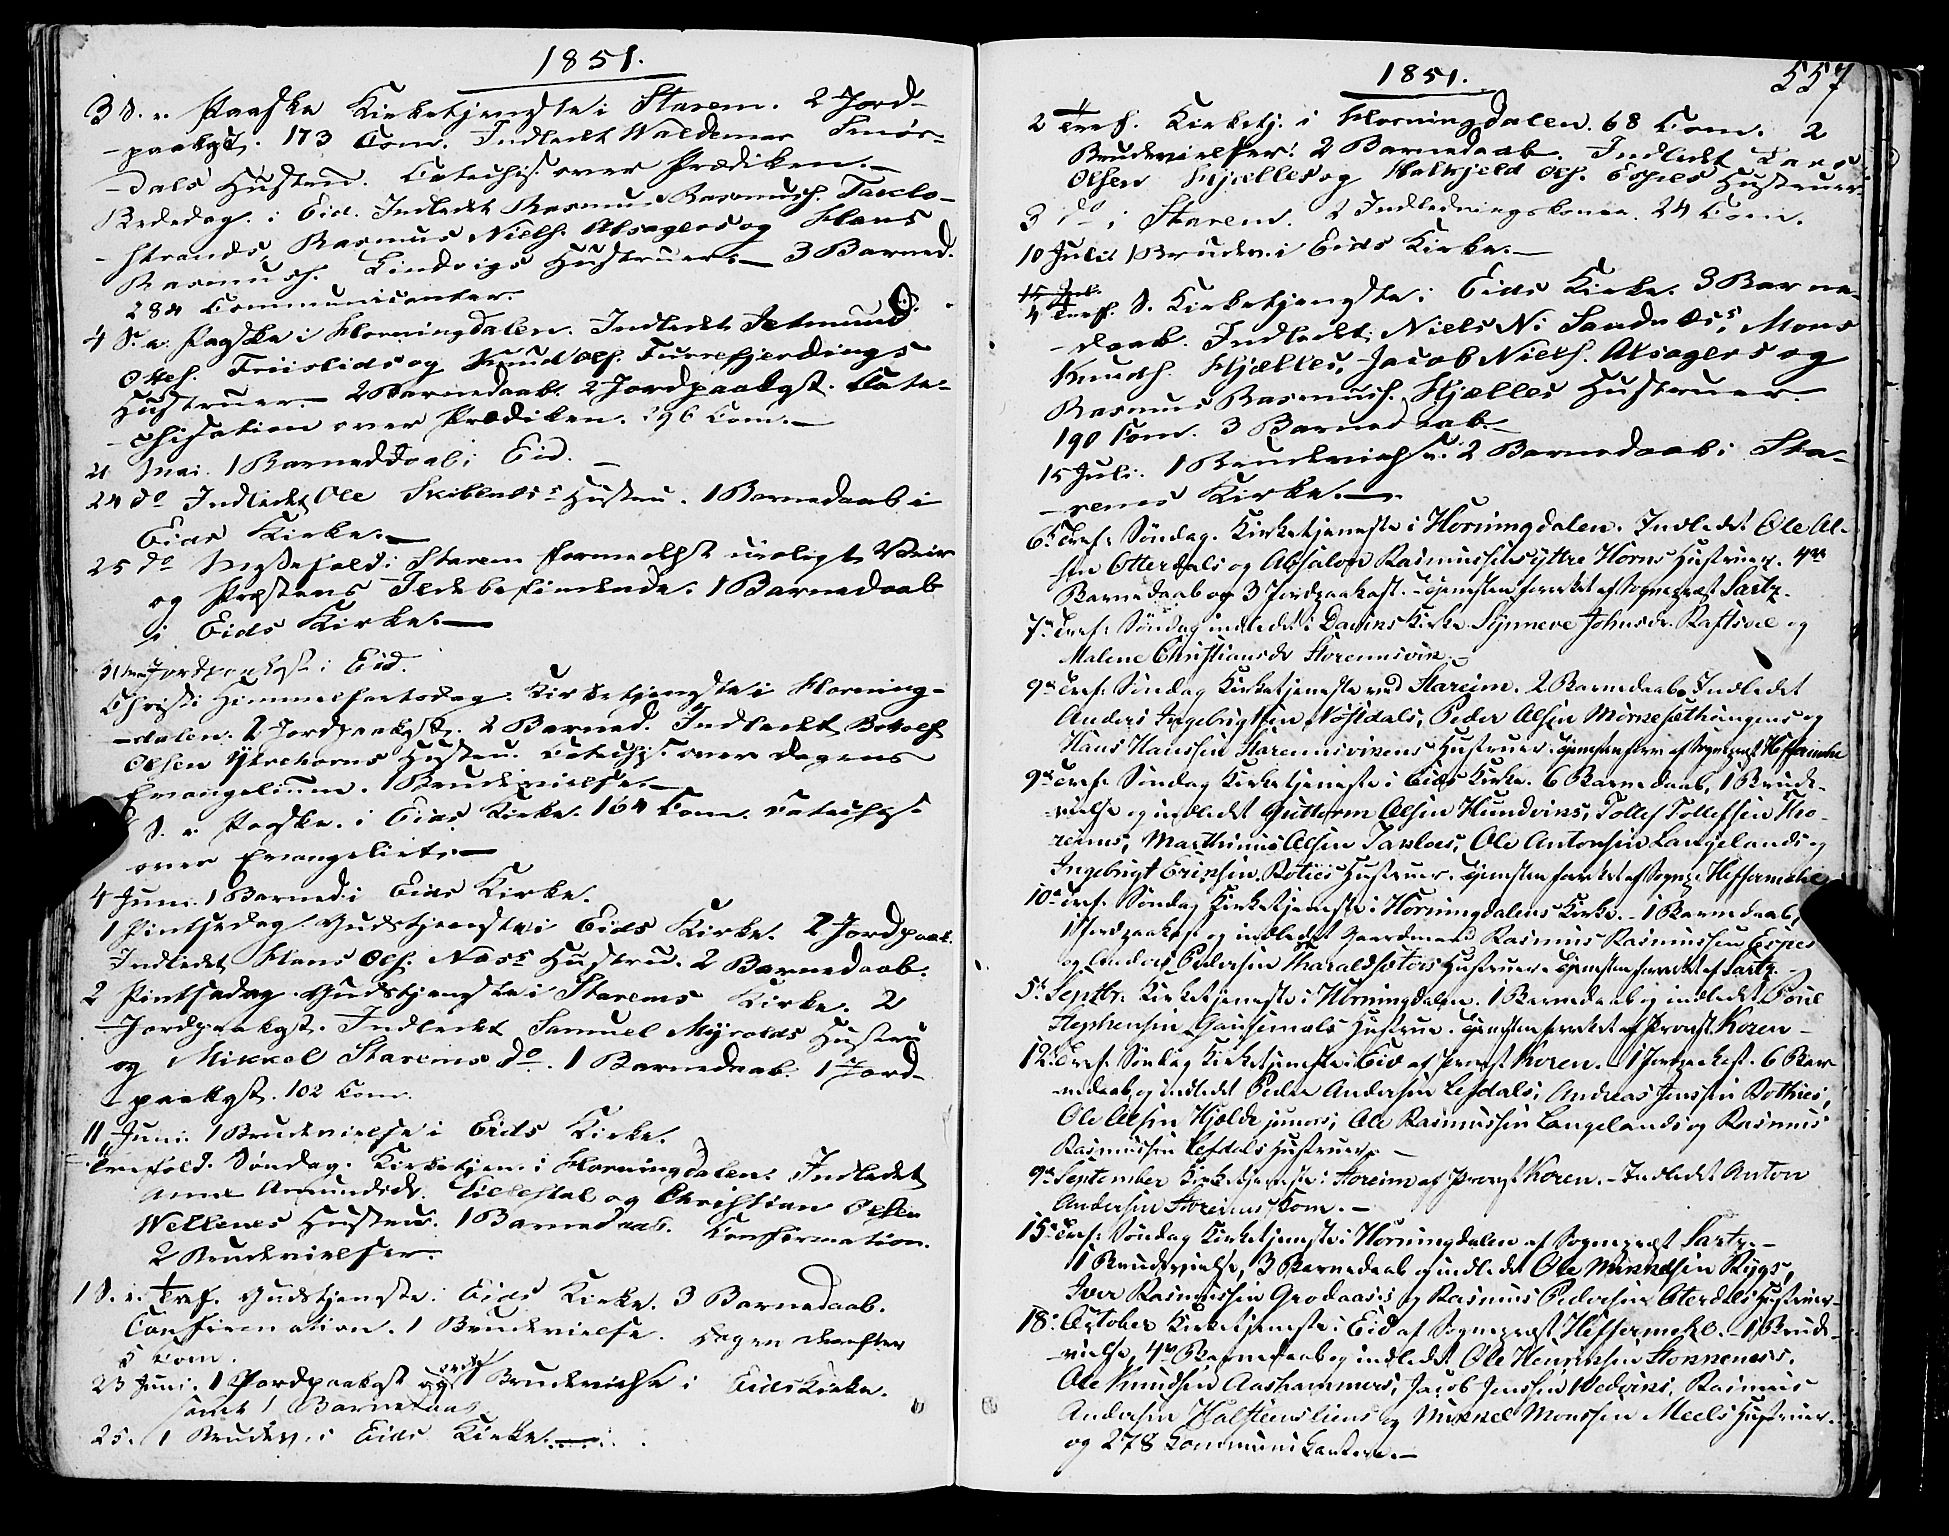 1851.
3 S. e. Paaske Kirketjenste i Starem. 2 Jord-
-paakgst. 173 Com. Indledet Waldemar Smør-
-dals Hustru. Catechis. over Prædiken.—
Bededag i Eid. Indledet Rasmus Rasmuss. Taklo-
-strands, Rasmus Niels. Alsagers og Hans
Rasmuss. Lindvigs Hustruer.— 3 Barned.
284 Communicanter.
4 S. e. Paaske i Horningdalen. Indledet Jetmund
Ols. Friislids og Knud Ols. Furrefjerdings
Hustruer.— 2 Barnedaab. 2 Jordpaakgst. Cate-
-chisation over Prædiken. 296 Com.—
21 Mai. 1 Barnedaab i Eid.—
24 do Indledet Ole Hustru. 1 Barnedaab i
Eids Kirke.—
25 do Messefald i Starem formedelst uroligt Veir
og Præstens Ildebefindende. 1 Barnedaab
i Eids Kirke.—
Jordpaakst. i Eid.
Christi Himmelfartsdag. Kirketjenste i Horning-
-dalen. 2 Jordpaakgst. 2 Barned. Indledet Botolf
Olsen Ytrehorns Hustru. Catechis. over Dagens
Evangelium. 1 Brudevielse.—
6 S. e. Paaske. i Eids Kirke. 164 Com. Catechis.
over Evangeliet.—
4 Juni. 1 Barned. i Eids Kirke.
1 Pintsedag. Gudstjenste i Eids Kirke. 2 Jordpaak.
Indledet Hans Ols. Nøss Hustru. 2 Barnedaab.
2 Pintsedag. Gudstjenste i Starems Kirke. 2
Jordpaakgst. Indledet Samuel Myrolds Hustru
og Mikkel Starems do. 1 Barnedaab. 1 Jord-
paakgst. 102 Com.
11 Juni. 1 Brudevielse i Eids Kirke.
Trefold. Søndag. Kirketjen. i Horningdalen. Indledet
Anne Amundsdr. og Christian Olsen
Wellenes Hustru. 1 Barnedaab. Konfirmation.
2 Brudevielser.
1 S. e. Tref. Gudstjenste i Eids Kirke. 3 Barnedaab.
Confirmation. 1 Brudevielse. Dagen derefter
5 Com.
23 Juni. 1 Jordpaakgst og 1 Brudevielse i Eids Kirke.
samt 1 Barnedaab
25. 1 Brudev. i Eids Kirke.
1851.
557
2 Tref. Kirketj. i Horningdalen. 68 Com. 2
Brudevielser. 2 Barnedaab. Indledet Lars
Olsen Kjælles og Halkjeld Ols. Espes Hustruer
3 do i Starem. 2 Indledningskoner. 24 Com.
10 Juli 1 Brudev. i Eids Kirke.—
4 Tref. S. Kirketjengste i Eids Kirke. 3 Barne-
-daab. Indledet Niels Ni Sandness, Mons
Knuds. Hjælles, Jacob Niels. Alsagers og
Rasmus Rasmuss. Hjælles Hustruer.
190 Com. 3 Barnedaab.—
15 Juli. 1 Brudevielse. 2 Barnedaab i Sta-
-rems Kirke.—
6te Tref: Søndag. Kirketjeneste i Horningdalen. Indledet Ole Ol-
sen Otterdals og Absalon Rasmussens yttre Horns Hustruer. 4re
Barnedaab og 3 Jordpaakast. Tjenesten forrettet af Sognepræst Sartz.
7de Tref: Søndag indledet i Davins Kirke Synneve Johnsdr. Raftevæ og
Malene Christiansdr Storemsvik.—
9de Tref: Søndag Kirketjeneste ved Stareim. 2 Barnedaab. Indledet
Anders Ingebrigtsen Nøstdals, Peder Olsen Mørnesethungens og
Hans Hanssen Staremsvikens Hustruer. Tjenesten forr: af Sognepræst Heffermehl
9de Tref: Søndag Kirketjeneste i Eids Kirke. 6 Barnedaab, 1 Brude-
-vielse og indledet Guttorm Olsen Hundviks, Tollef Tollefsen Tho-
reims, Marthinus Olsen Takloes, Ole Antonsen Langelands og
Ingebrigt Eriksen Roties Hustruer. Tjenesten forrettet af Sognep. Heffermehl
10de Tref. Søndag Kirketjeneste i Horningdalens Kirke.— 1 Barnedaab,
1 Jordpaakast og indledet Gaardmand Rasmus Rasmussen Espes
og Anders Pedersen Haraldsæters Hustruer. Tjenesten forrettet af Sartz.
5te Septbr. Kirketjeneste i Horningdalen. 1 Barnedaab og indledet Poul
Stephensen Gausemels Hustrue. Tjenesten forrettet af Provst Koren—
12te Tref. Søndag Kirketjeneste i Eid af Provst Koren.— 1 Jordpaakast. 6 Bar-
nedaab, og indledet Peder Andersen Lefdals, Andreas Jenssen Rothies,
Ole Olsen Hjelde juniors, Ole Rasmussen Langelands og Rasmus
Rasmussen Lefdals Hustruer.—
9de September Kirketjeneste i Stareim af Provst Koren.— Indledet Anton
Andersen Stareims Kone.—
15de Tref: Søndag Kirketjeneste i Horningdalen af Sognepræst Sartz.—
1 Brudevielse, 3 Barnedaab og indledet Ole Mikkelsen Rygs,
Iver Rasmussen Grodaas's og Rasmus Pedersen Oterdals Hustruer.
18de October Kirketjeneste i Eid af Sognepræst Heffermehl.— 1 Brude-
-vielse, 4re Barnedaab og indledet Ole Henriksen Stokkeness.
Ole Knudsen Aashammers, Jacob Jenssen Nedviks, Rasmus
Andersen Halsteensliens og Mikkel Monssen Meels Hustruer.
og 278 Communikantere.—